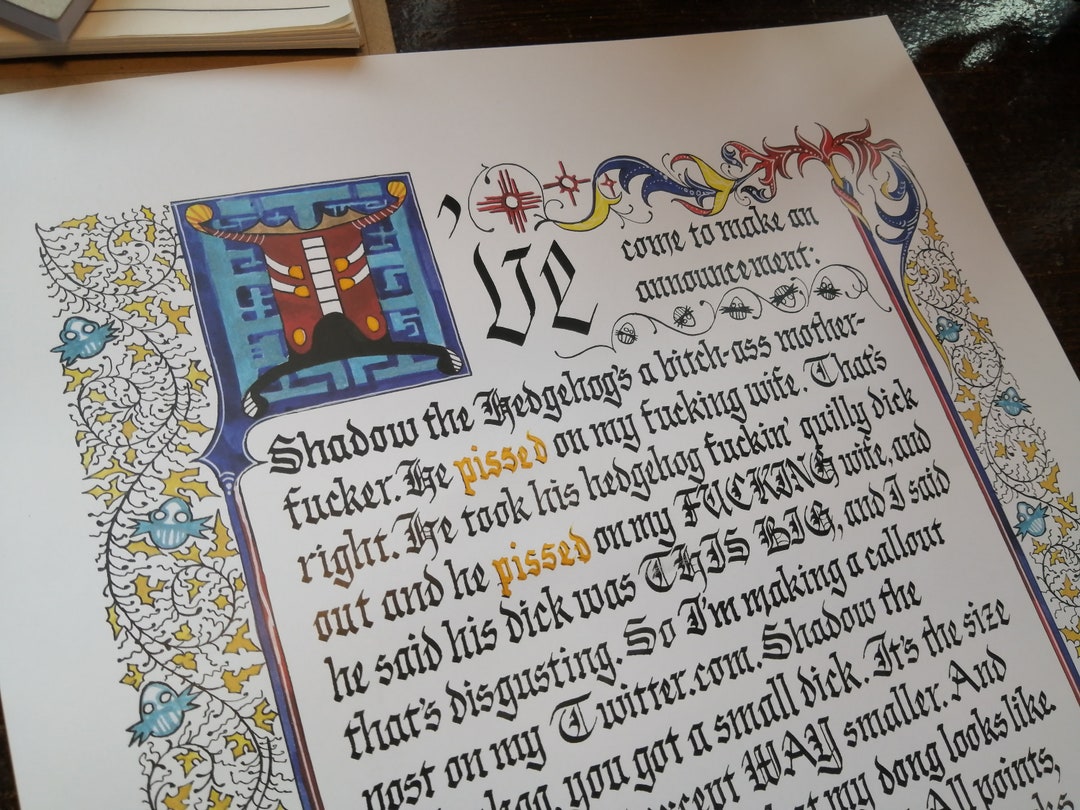 I've come to make an
announcement:
Shadow the Hedgehog's a bitch-ass mother-
fucker. He pissed on my fucking wife. That's
right. He took his hedgehog fuckin' quilly dick
out and he pissed on my FUCKING wife, and
he said his dick was THIS BIG, and I said
that's disgusting. So I'm making a callout
post on my Twitter.com. Shadow the
you got a small dick. It's the size
WAY smaller. And
my dong looks like
All points,